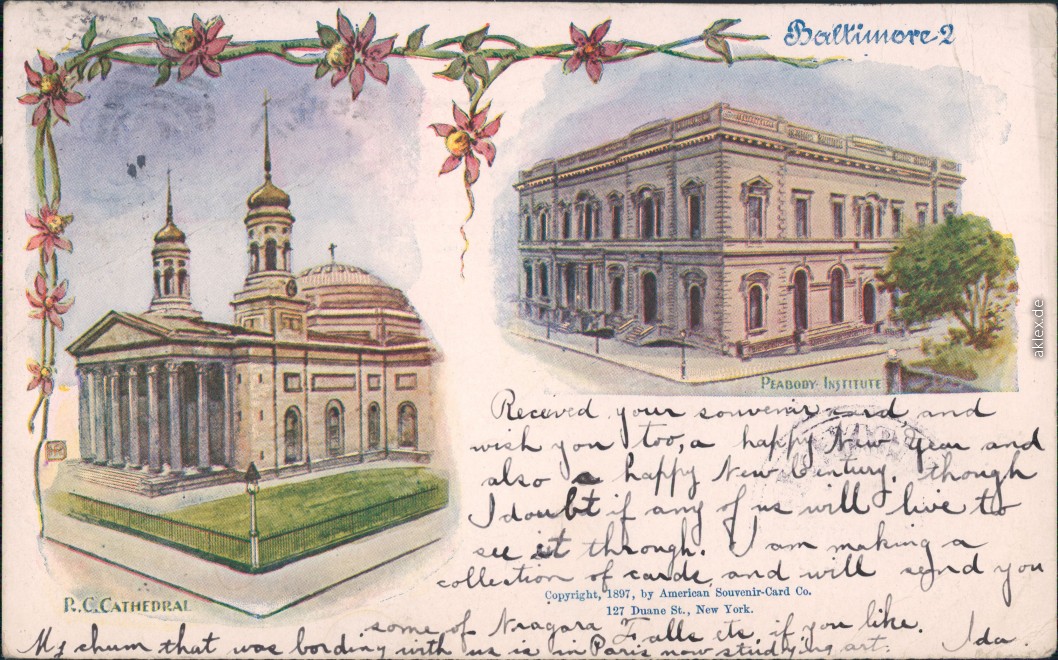 Baltimore 2
PEABODY INSTITUTE
R. C. CATHEDRAL
Received your souvenir card, and
wish you too, a happy New Year and
also a happy New Century, though
I doubt if any of us will live to
see it through. I am making a
collection of cards, and will send you
Copyright, 1897, by American Souvenir-Card Co.
127 Duane St., New York.
some of Niagara Falls etc. if you like.
My chum that was bording with us is in Paris now studying art. Ida.
aklex.de